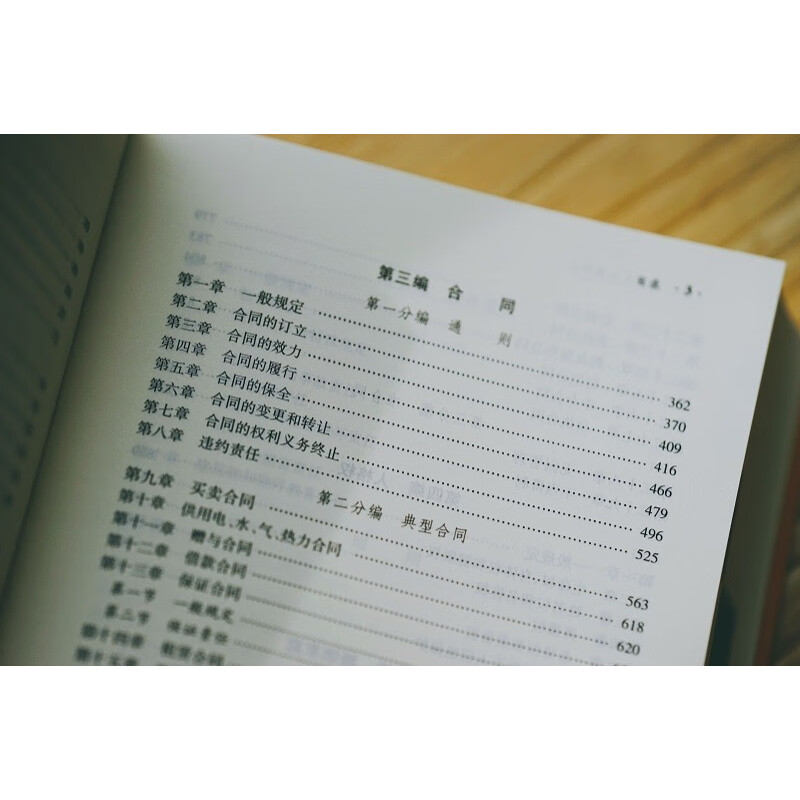 目录 ·3·
第三编 合 同
第一分编 通 则
第一章 一般规定 …… 362
第二章 合同的订立 …… 370
第三章 合同的效力 …… 409
第四章 合同的履行 …… 416
第五章 合同的保全 …… 466
第六章 合同的变更和转让 …… 479
第七章 合同的权利义务终止 …… 496
第八章 违约责任 …… 525
第二分编 典型合同
第九章 买卖合同 …… 563
第十章 供用电、水、气、热力合同 …… 618
第十一章 赠与合同 …… 620
第十二章 借款合同 ……
第十三章 保证合同 ……
第一节 一般规定 ……
第二节 保证责任 ……
第十四章 租赁合同 ……
第十五章